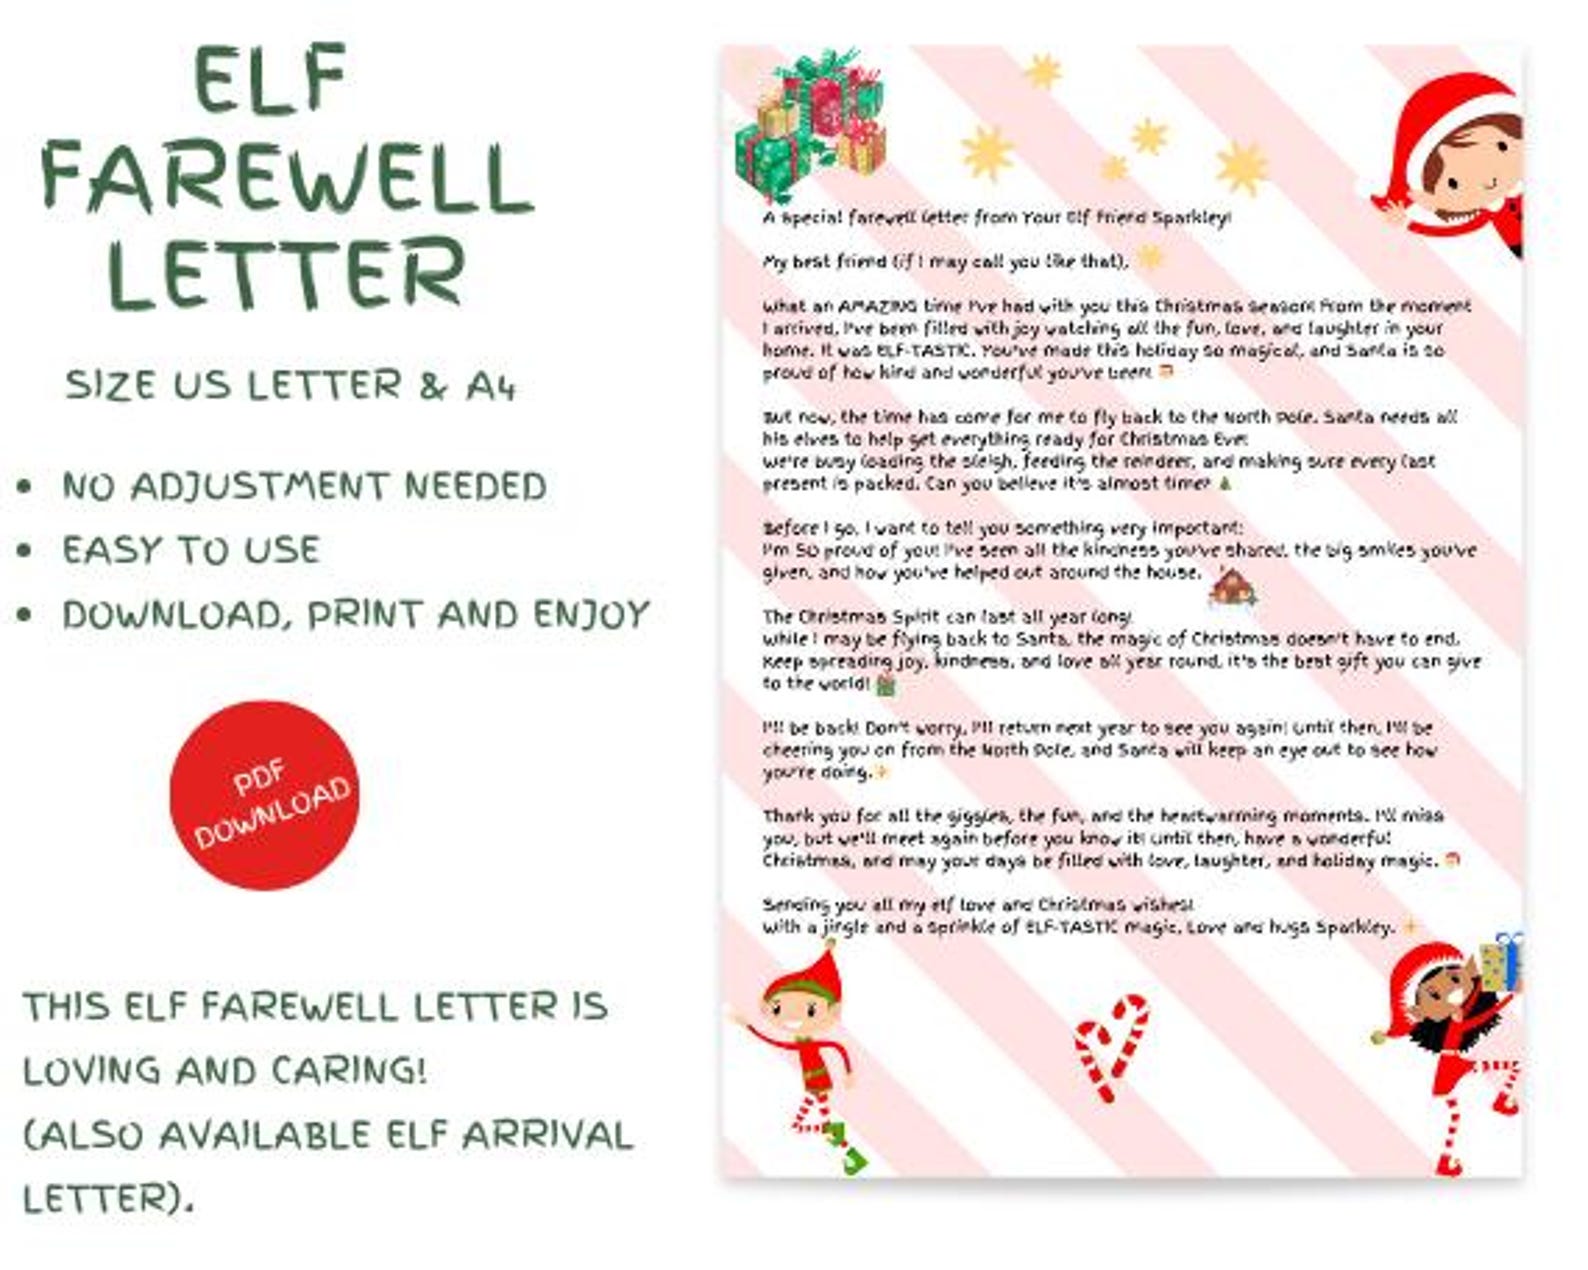 ELF
FAREWELL
LETTER
SIZE US LETTER & A4
• NO ADJUSTMENT NEEDED
• EASY TO USE
• DOWNLOAD, PRINT AND ENJOY
PDF
DOWNLOAD
THIS ELF FAREWELL LETTER IS
LOVING AND CARING!
(ALSO AVAILABLE ELF ARRIVAL
LETTER).
A special farewell letter from Your Elf Friend Sparkley!
My best friend (if I may call you like that),
What an AMAZING time I've had with you this Christmas season! From the moment
I arrived, I've been filled with joy watching all the fun, love, and laughter in your
home. It was ELF-TASTIC. You've made this holiday so magical, and Santa is so
proud of how kind and wonderful you've been!
But now, the time has come for me to fly back to the North Pole. Santa needs all
his elves to help get everything ready for Christmas Eve!
We're busy loading the sleigh, feeding the reindeer, and making sure every last
present is packed. Can you believe it's almost time?
Before I go, I want to tell you something very important:
I'm SO proud of you! I've seen all the kindness you've shared, the big smiles you've
given, and how you've helped out around the house.
The Christmas Spirit can last all year long!
While I may be flying back to Santa, the magic of Christmas doesn't have to end.
Keep spreading joy, kindness, and love all year round, it's the best gift you can give
to the world!
I'll be back! Don't worry, I'll return next year to see you again! Until then, I'll be
cheering you on from the North Pole, and Santa will keep an eye out to see how
you're doing.
Thank you for all the giggles, the fun, and the heartwarming moments. I'll miss
you, but we'll meet again before you know it! Until then, have a wonderful
Christmas, and may your days be filled with love, laughter, and holiday magic.
Sending you all my elf love and Christmas wishes!
With a jingle and a sprinkle of ELF-TASTIC magic, Love and hugs Sparkley.